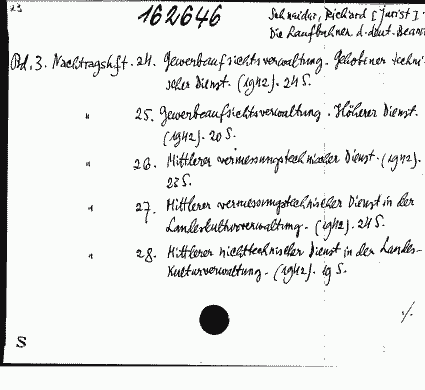 23
162646
Schneider, Richard [Jurist]:
Die Laufbahnen d. deut. Beam
Bd. 3. Nachtragshft. 24. Gewerbeaufsichtsverwaltung. Gehobener techni-
scher Dienst. (1942). 24 S.
" 25. Gewerbeaufsichtsverwaltung. Höherer Dienst.
(1942). 20 S.
" 26. Mittlerer vermessungstechnischer Dienst. (1942).
23 S.
" 27. Mittlerer vermessungstechnischer Dienst in der
Landeskulturverwaltung. (1942). 24 S.
" 28. Mittlerer nichttechnischer Dienst in der Landes-
kulturverwaltung. (1942). 19 S.
./.
S